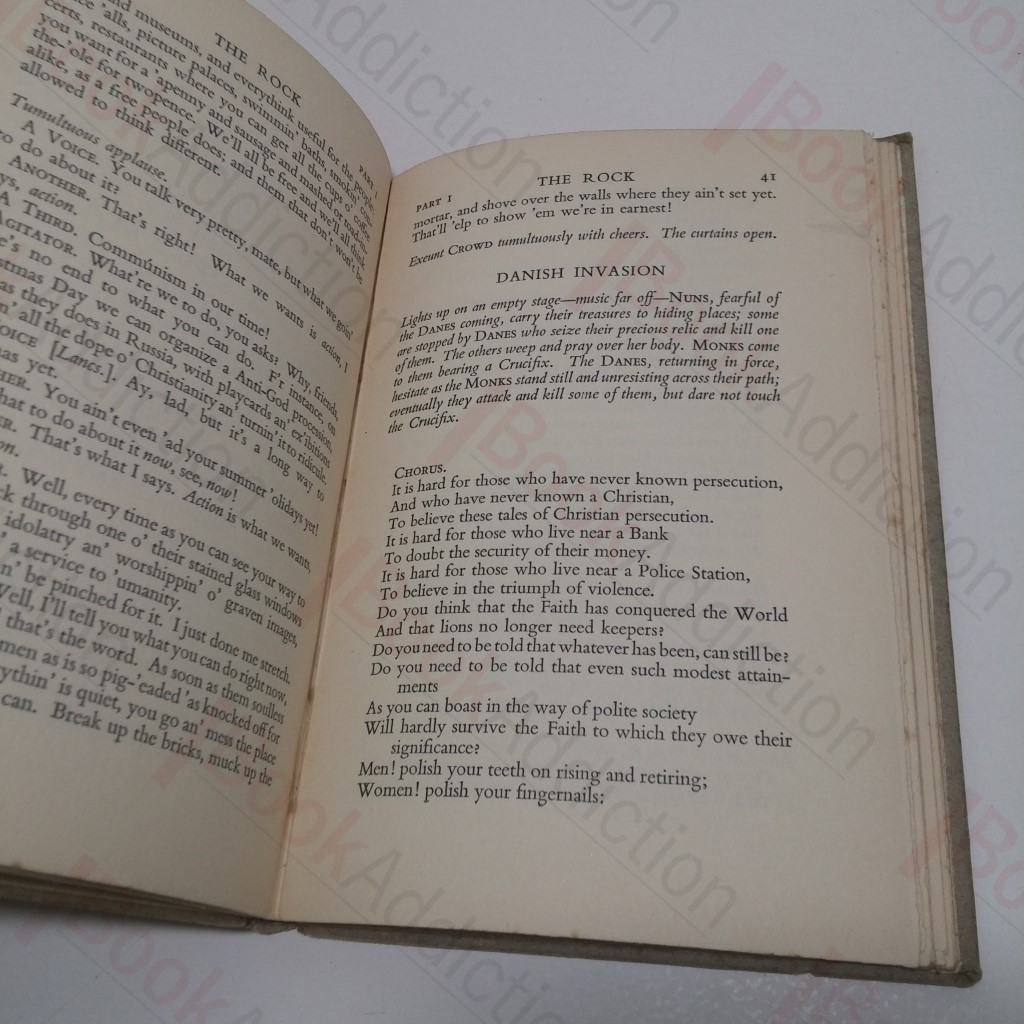 THE ROCK
PART I
and museums, and everythink useful for the people,
'alls, picture palaces, swimmin' baths, smokin' con-
certs, restaurants where you can get all the cups o' coffee
you want for a 'apenny and sausage and mashed or toad-in-
the-'ole for twopence. We'll all be free and we'll all think
alike, as a free people does; and them that don't won't be
allowed to think different.
Tumultuous applause.
A VOICE. You talk very pretty, mate, but what we goin'
to do about it?
ANOTHER. That's right! What we wants is action, I
says, action.
A THIRD. Commúnism in our time!
AGITATOR. What're we to do, you asks? Why, friends,
there's no end to what you can do. F'r instance, on
Christmas Day we can organize a Anti-God procession,
as they does in Russia, with playcards an' ex'ibitions
'all the dope o' Christianity an' turnin' it to ridicule.
VOICE [Lancs.]. Ay, lad, but it's a long way to
yet.
You ain't even 'ad your summer 'olidays yet!
what to do about it now, see, now!
That's what I says. Action is what we wants,
Well, every time as you can see your way to
through one o' their stained glass windows
idolatry an' worshippin' o' graven images,
a service to 'umanity.
be pinched for it. I just done me stretch.
Well, I'll tell you what you can do right now,
that's the word. As soon as them soulless
men as is so pig-'eaded 'as knocked off for
is quiet, you go an' mess the place
can. Break up the bricks, muck up the
PART I
THE ROCK
41
mortar, and shove over the walls where they ain't set yet.
That'll 'elp to show 'em we're in earnest!
Exeunt CROWD tumultuously with cheers. The curtains open.
DANISH INVASION
Lights up on an empty stage—music far off—NUNS, fearful of
the DANES coming, carry their treasures to hiding places; some
are stopped by DANES who seize their precious relic and kill one
of them. The others weep and pray over her body. MONKS come
to them bearing a Crucifix. The DANES, returning in force,
hesitate as the MONKS stand still and unresisting across their path;
eventually they attack and kill some of them, but dare not touch
the Crucifix.
CHORUS.
It is hard for those who have never known persecution,
And who have never known a Christian,
To believe these tales of Christian persecution.
It is hard for those who live near a Bank
To doubt the security of their money.
It is hard for those who live near a Police Station,
To believe in the triumph of violence.
Do you think that the Faith has conquered the World
And that lions no longer need keepers?
Do you need to be told that whatever has been, can still be?
Do you need to be told that even such modest attain-
ments
As you can boast in the way of polite society
Will hardly survive the Faith to which they owe their
significance?
Men! polish your teeth on rising and retiring;
Women! polish your fingernails:
BookAddiction